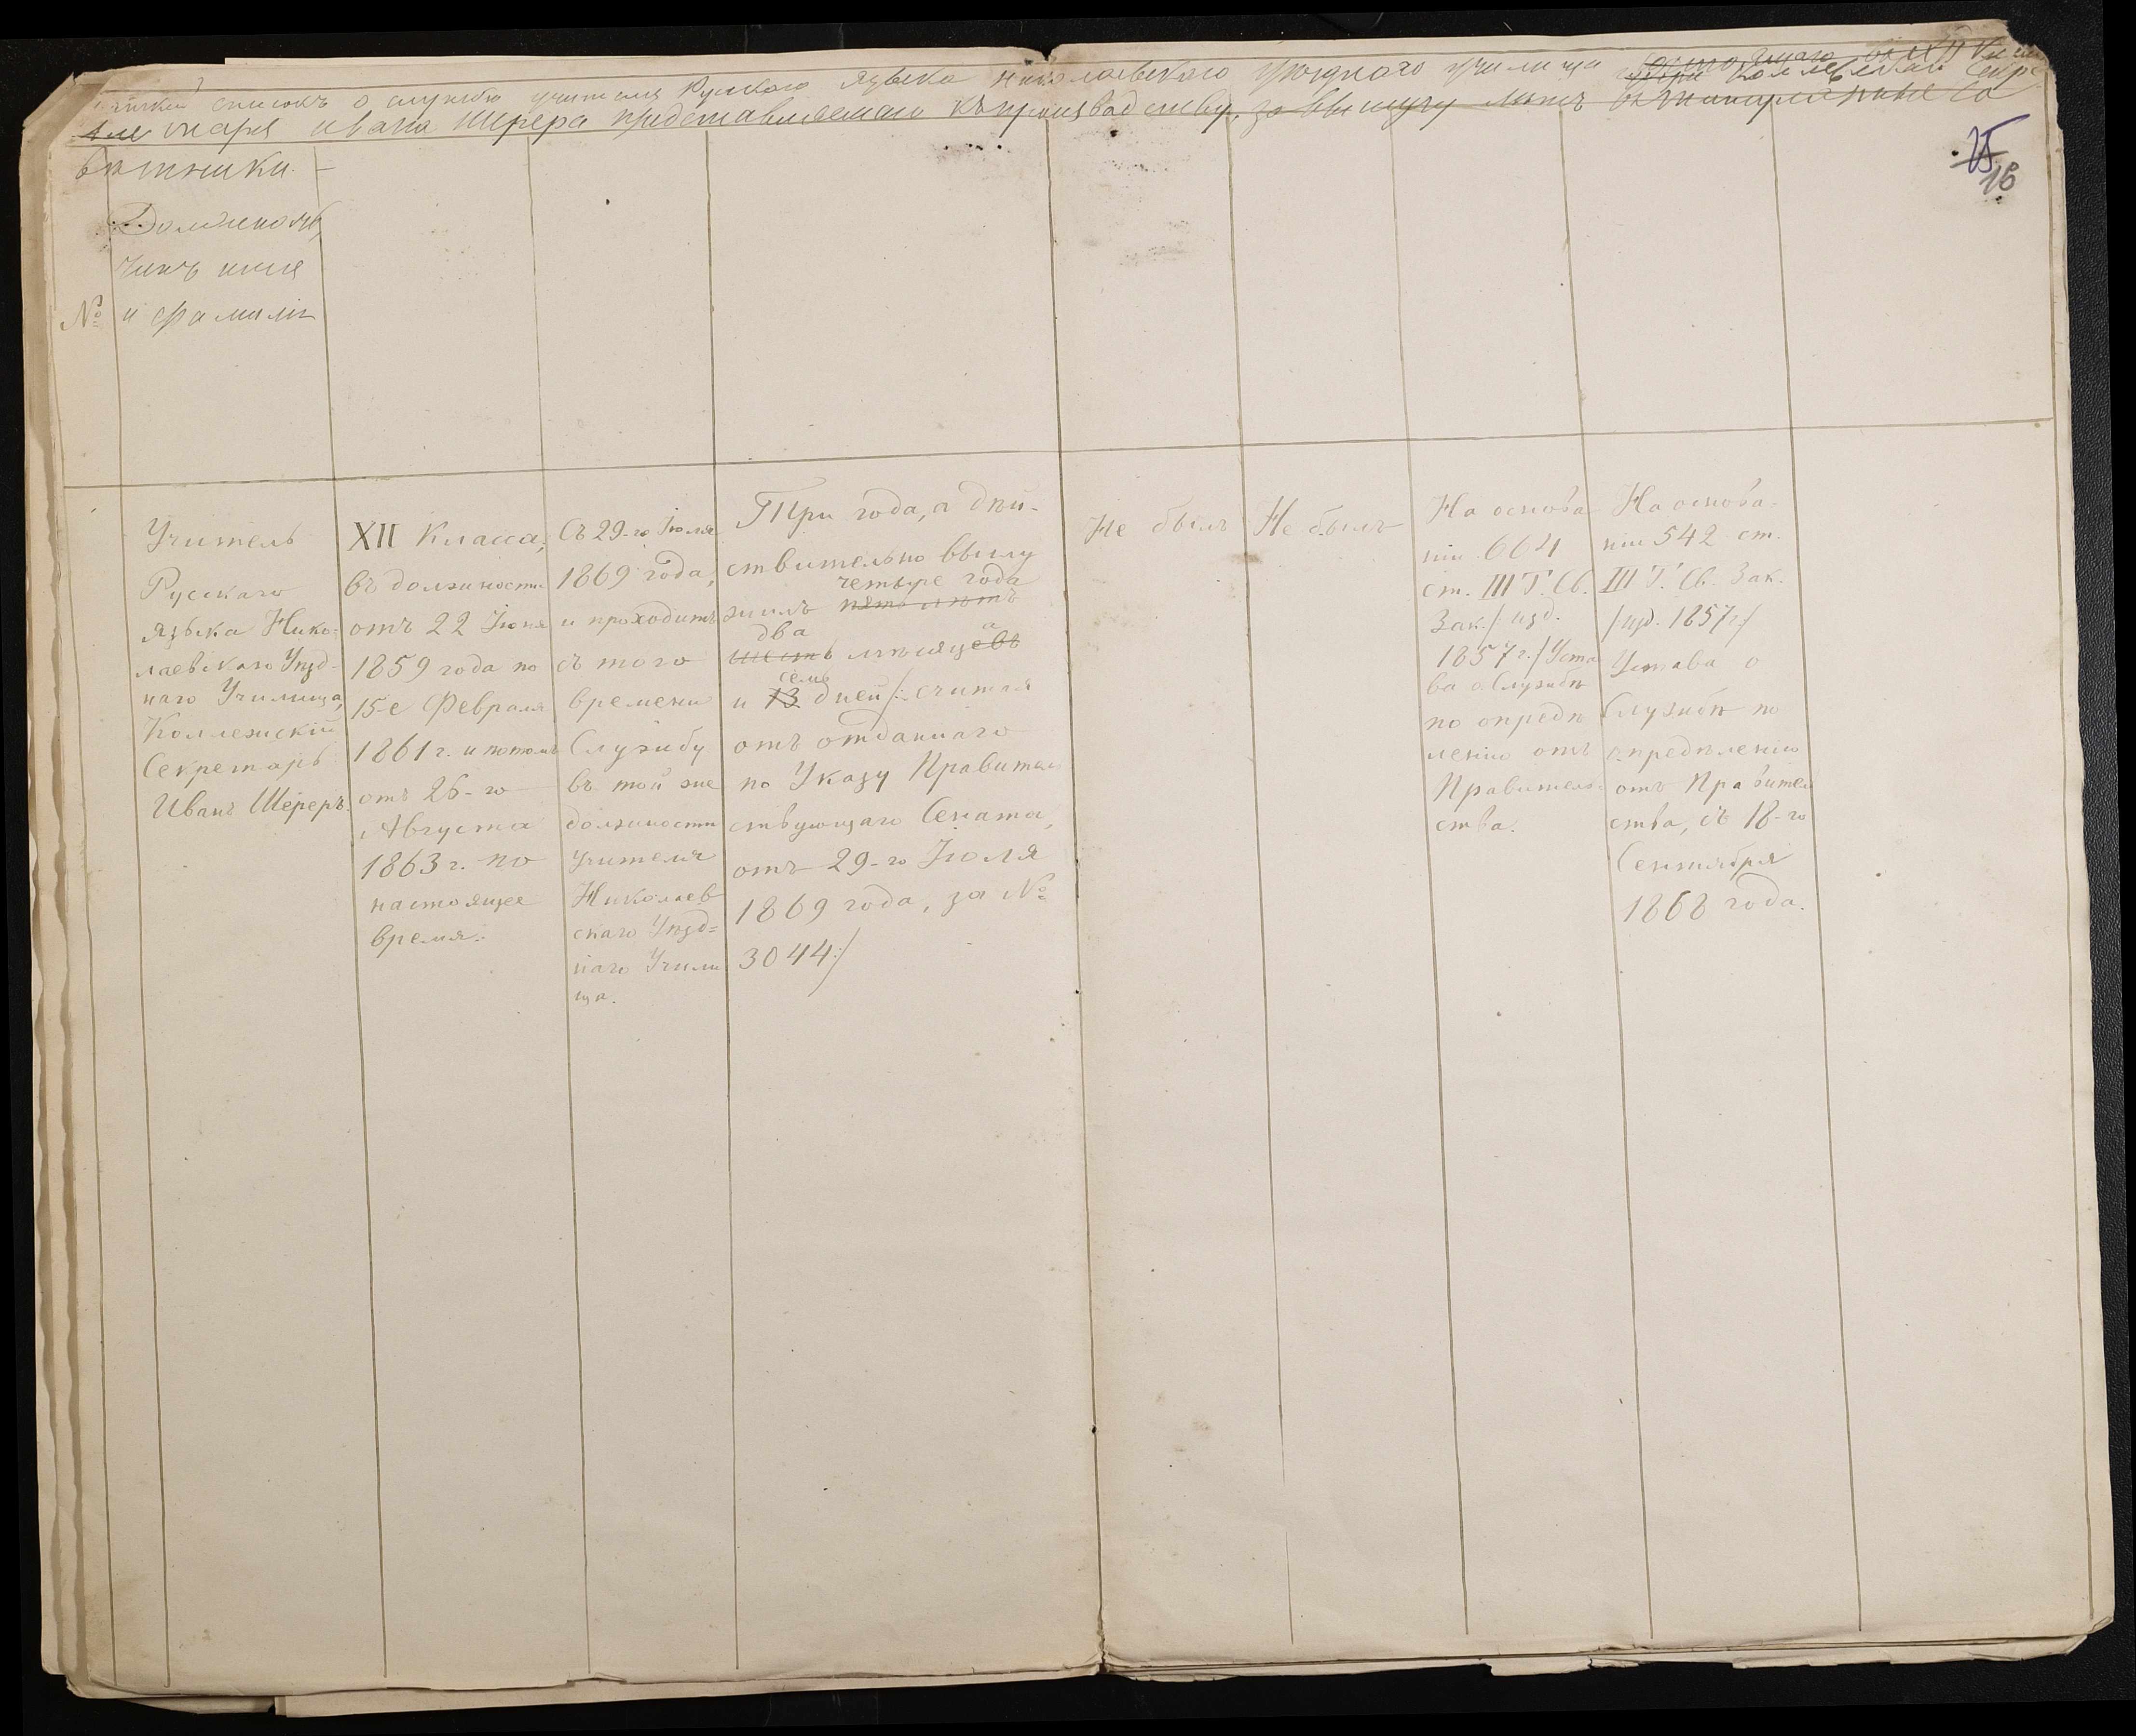 списокъ о службѣ учителя Русскаго языка Николаевскаго уѣзднаго училища состоящаго въ XII
таря Ивана Шерера представляемаго къ производству, за выслугу лѣтъ въ титулярные со
вѣтники. –
25
16
Должность,
чинъ имя
№ и фамилія
Учитель
Русскаго
языка Нико-
лаевскаго Уѣзд-
наго Училища,
Коллежскій
Секретарь
Иванъ Шереръ.
XII Класса,
въ должности
отъ 22 Іюня
1859 года по
15-е Февраля
1861 г. и потомъ
отъ 26-го
Августа
1863 г. по
настоящее
время.
Съ 29-го Іюля
1869 года,
и проходитъ
съ того
времени
Службу
въ той же
должности
учителя
Николаев
скаго Уѣзд=
наго Учили
ща.
Три года, а дѣй-
ствительно выслу
четыре года
жилъ пять лѣтъ
два а
шесть мѣсяцевъ
семь
и 13 дней /: считая
отъ отданнаго
по Указу Правитель
ствующаго Сената,
отъ 29-го Іюля
1869 года, за №
3044:/
Не былъ
Не былъ
На основа
ніи 664
ст. III Т. Св.
Зак. / изд.
1857 г. / Уста
ва о Службѣ
по опредѣ
ленію отъ
Правитель-
ства.
На основа-
ніи 542 ст.
III Т. Св. Зак.
/ изд. 1857 г /
Устава о
Службѣ по
опредѣленію
отъ Правитель
ства, съ 18-го
Сентября
1868 года.